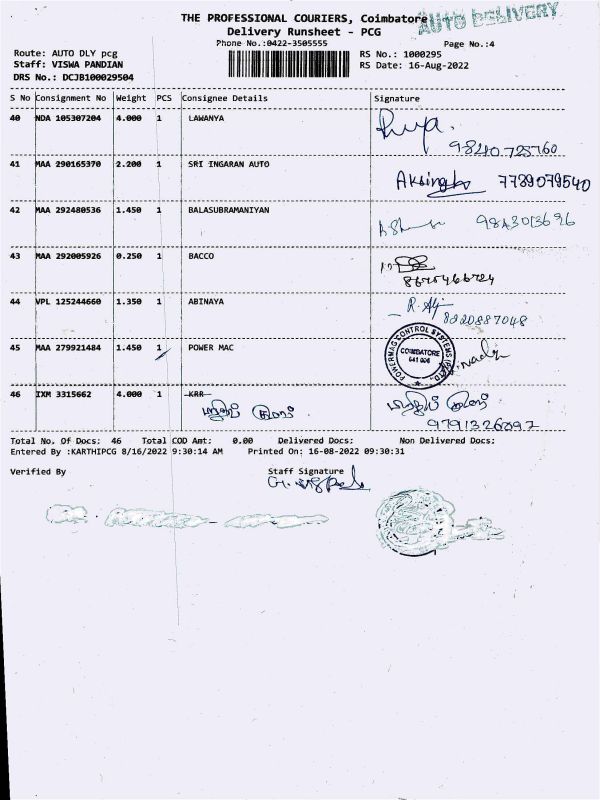 THE PROFESSIONAL COURIERS, Coimbatore
AUTO DELIVERY
Delivery Runsheet - PCG
Phone No.:0422-3505555
Page No.:4
Route: AUTO DLY pcg
RS No.: 1000295
Staff: VISWA PANDIAN
RS Date: 16-Aug-2022
DRS No.: DCJB100029504
S No Consignment No Weight PCS Consignee Details Signature
40 NDA 105307204 4.000 1 LAWANYA
41 MAA 290165370 2.200 1 SRI INGARAN AUTO
7739079540
42 MAA 292480536 1.450 1 BALASUBRAMANIYAN
43 MAA 292005926 0.250 1 BACCO
44 VPL 125244660 1.350 1 ABINAYA
8220887048
45 MAA 279921484 1.450 1 POWER MAC
POWERMAG CONTROL SYSTEMS
COIMBATORE
641 006
46 IXM 3315662 4.000 1 KRR
9791326897
Total No. Of Docs: 46 Total COD Amt: 0.00 Delivered Docs: Non Delivered Docs:
Entered By :KARTHIPCG 8/16/2022 9:30:14 AM Printed On: 16-08-2022 09:30:31
Verified By Staff Signature